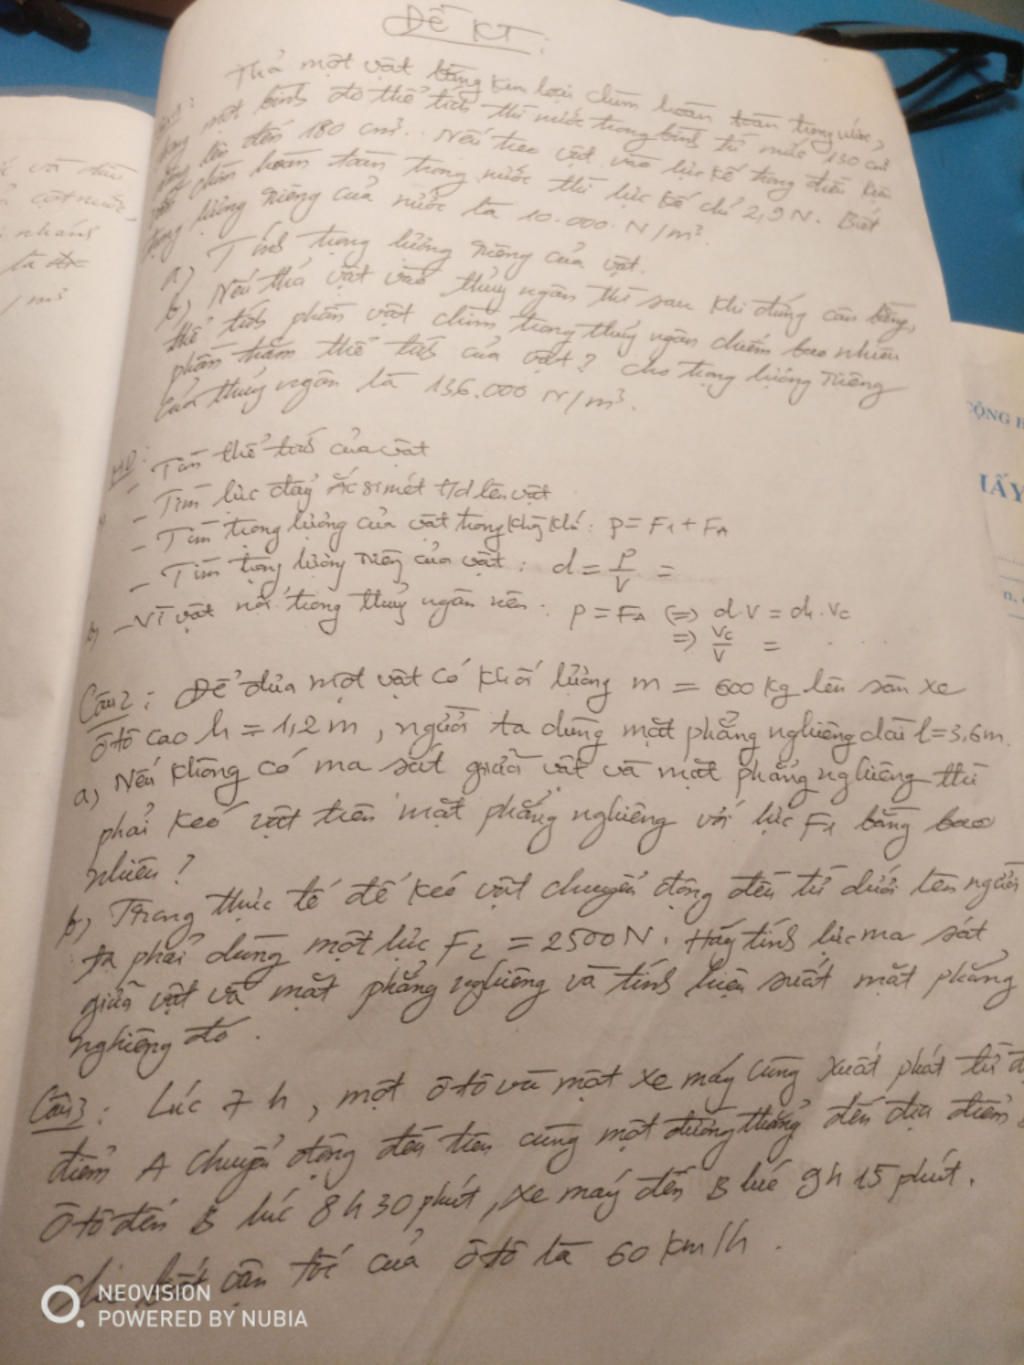 ĐỀ KT:
Thả một vật bằng kim loại chìm hoàn toàn trong nước,
trong một bình đo thể tích thì nước trong bình từ mức 130 cm³
dâng lên đến 180 cm³. Nếu treo vật vào lực kế trong điều kiện
vật chìm hoàn toàn trong nước thì lực kế chỉ 2,9 N. Biết
trọng lượng riêng của nước là 10.000 N/m³.
a) Tính trọng lượng riêng của vật.
b) Nếu thả vật vào thuỷ ngân thì sau khi đứng cân bằng,
thể tích phần vật chìm trong thuỷ ngân chiếm bao nhiêu
phần trăm thể tích của vật? Cho trọng lượng riêng
của thuỷ ngân là 136.000 N/m³.
HD:
- Tìm thể tích của vật
- Tìm lực đẩy Ác si mét t/d lên vật
- Tìm trọng lượng của vật trong không khí: P = F1 + FA
- Tìm trọng lượng riêng của vật: d = P/V =
b) - Vì vật nổi trong thuỷ ngân nên: P = FA (=) d.V = d1.Vc
=> Vc/V =
Câu 2: Để đưa một vật có khối lượng m = 600 kg lên sàn xe
ô tô cao h = 1,2 m, người ta dùng mặt phẳng nghiêng dài l = 3,6 m.
a) Nếu không có ma sát giữa vật và mặt phẳng nghiêng thì
phải kéo vật trên mặt phẳng nghiêng với lực F1 bằng bao
nhiêu?
b) Trong thực tế để kéo vật chuyển động đều từ dưới lên người
ta phải dùng một lực F2 = 2500 N. Hãy tính lực ma sát
giữa vật và mặt phẳng nghiêng và tính hiệu suất mặt phẳng
nghiêng đó.
Câu 3: Lúc 7 h, một ô tô và một xe máy cùng xuất phát từ
điểm A chuyển động đều trên cùng một đường thẳng đến địa điểm
Ô tô đến B lúc 8 h 30 phút, xe máy đến B lúc 9 h 15 phút.
Cho biết vận tốc của ô tô là 60 km/h.
và
cột nước
nhánh
là
/m³
CỘNG H
IẤY
NEOVISION
POWERED BY NUBIA